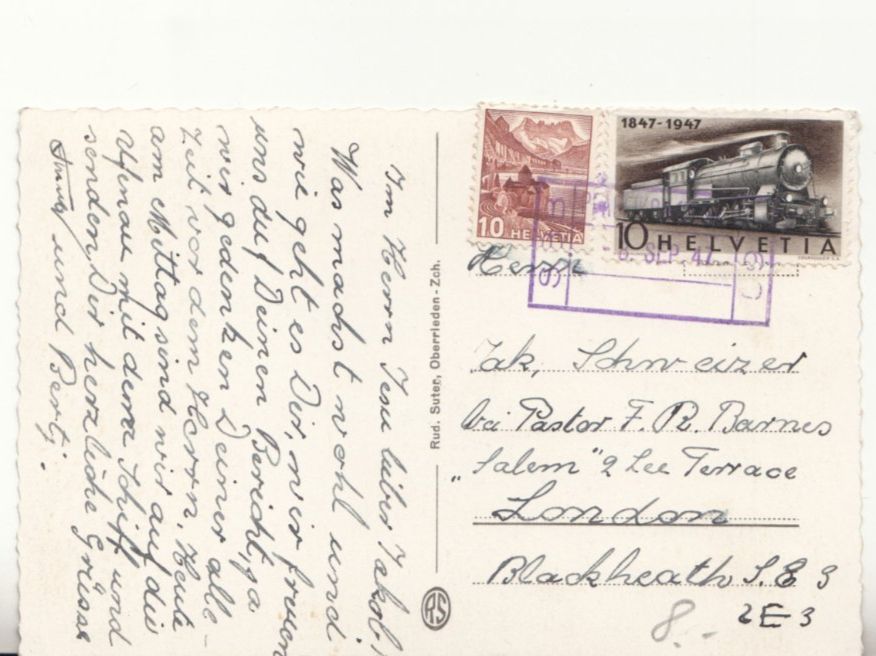 Im Herrn Jesu lieber Jakob!
Was machst wohl und
wie geht es Dir, wir freuen
uns auf Deinen Bericht, ja
wir gedenken Deiner alle-
Zeit vor dem Herrn. Heute
am Mittag sind wir auf die
Ufenau mit dem Schiff und
senden Dir herzliche Grüsse
und Berty.
Rud. Suter, Oberrieden-Zch.
RS
10 HELVETIA
1847-1947
10 HELVETIA
SEP. 47
Herrn
Jak. Schweizer
bei Pastor F. R. Barnes
„Salem" 2 Lee Terrace
London
Blackheath S.E 3
SE-3
8.-